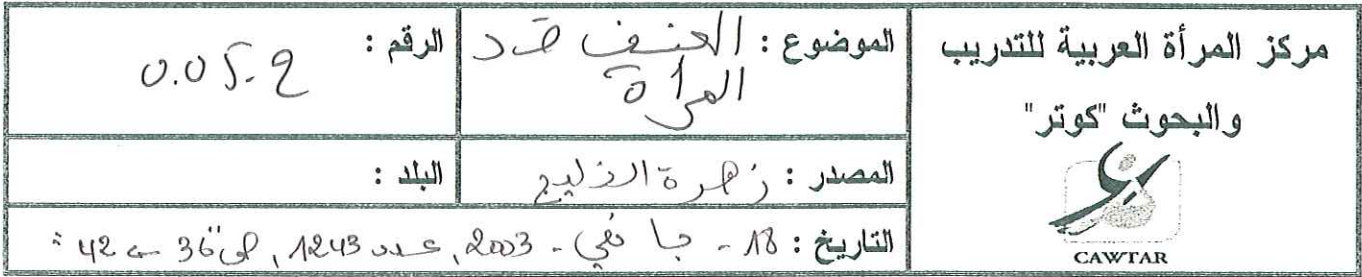 مركز المرأة العربية للتدريب
والبحوث "كوتر"
CAWTAR
الموضوع : العنف ضد
المرأة
الرقم :
المصدر : زهرة الخليج
البلد :
التاريخ : 18 - جانفي - 2003, عدد 1243, ص 36 ← 42